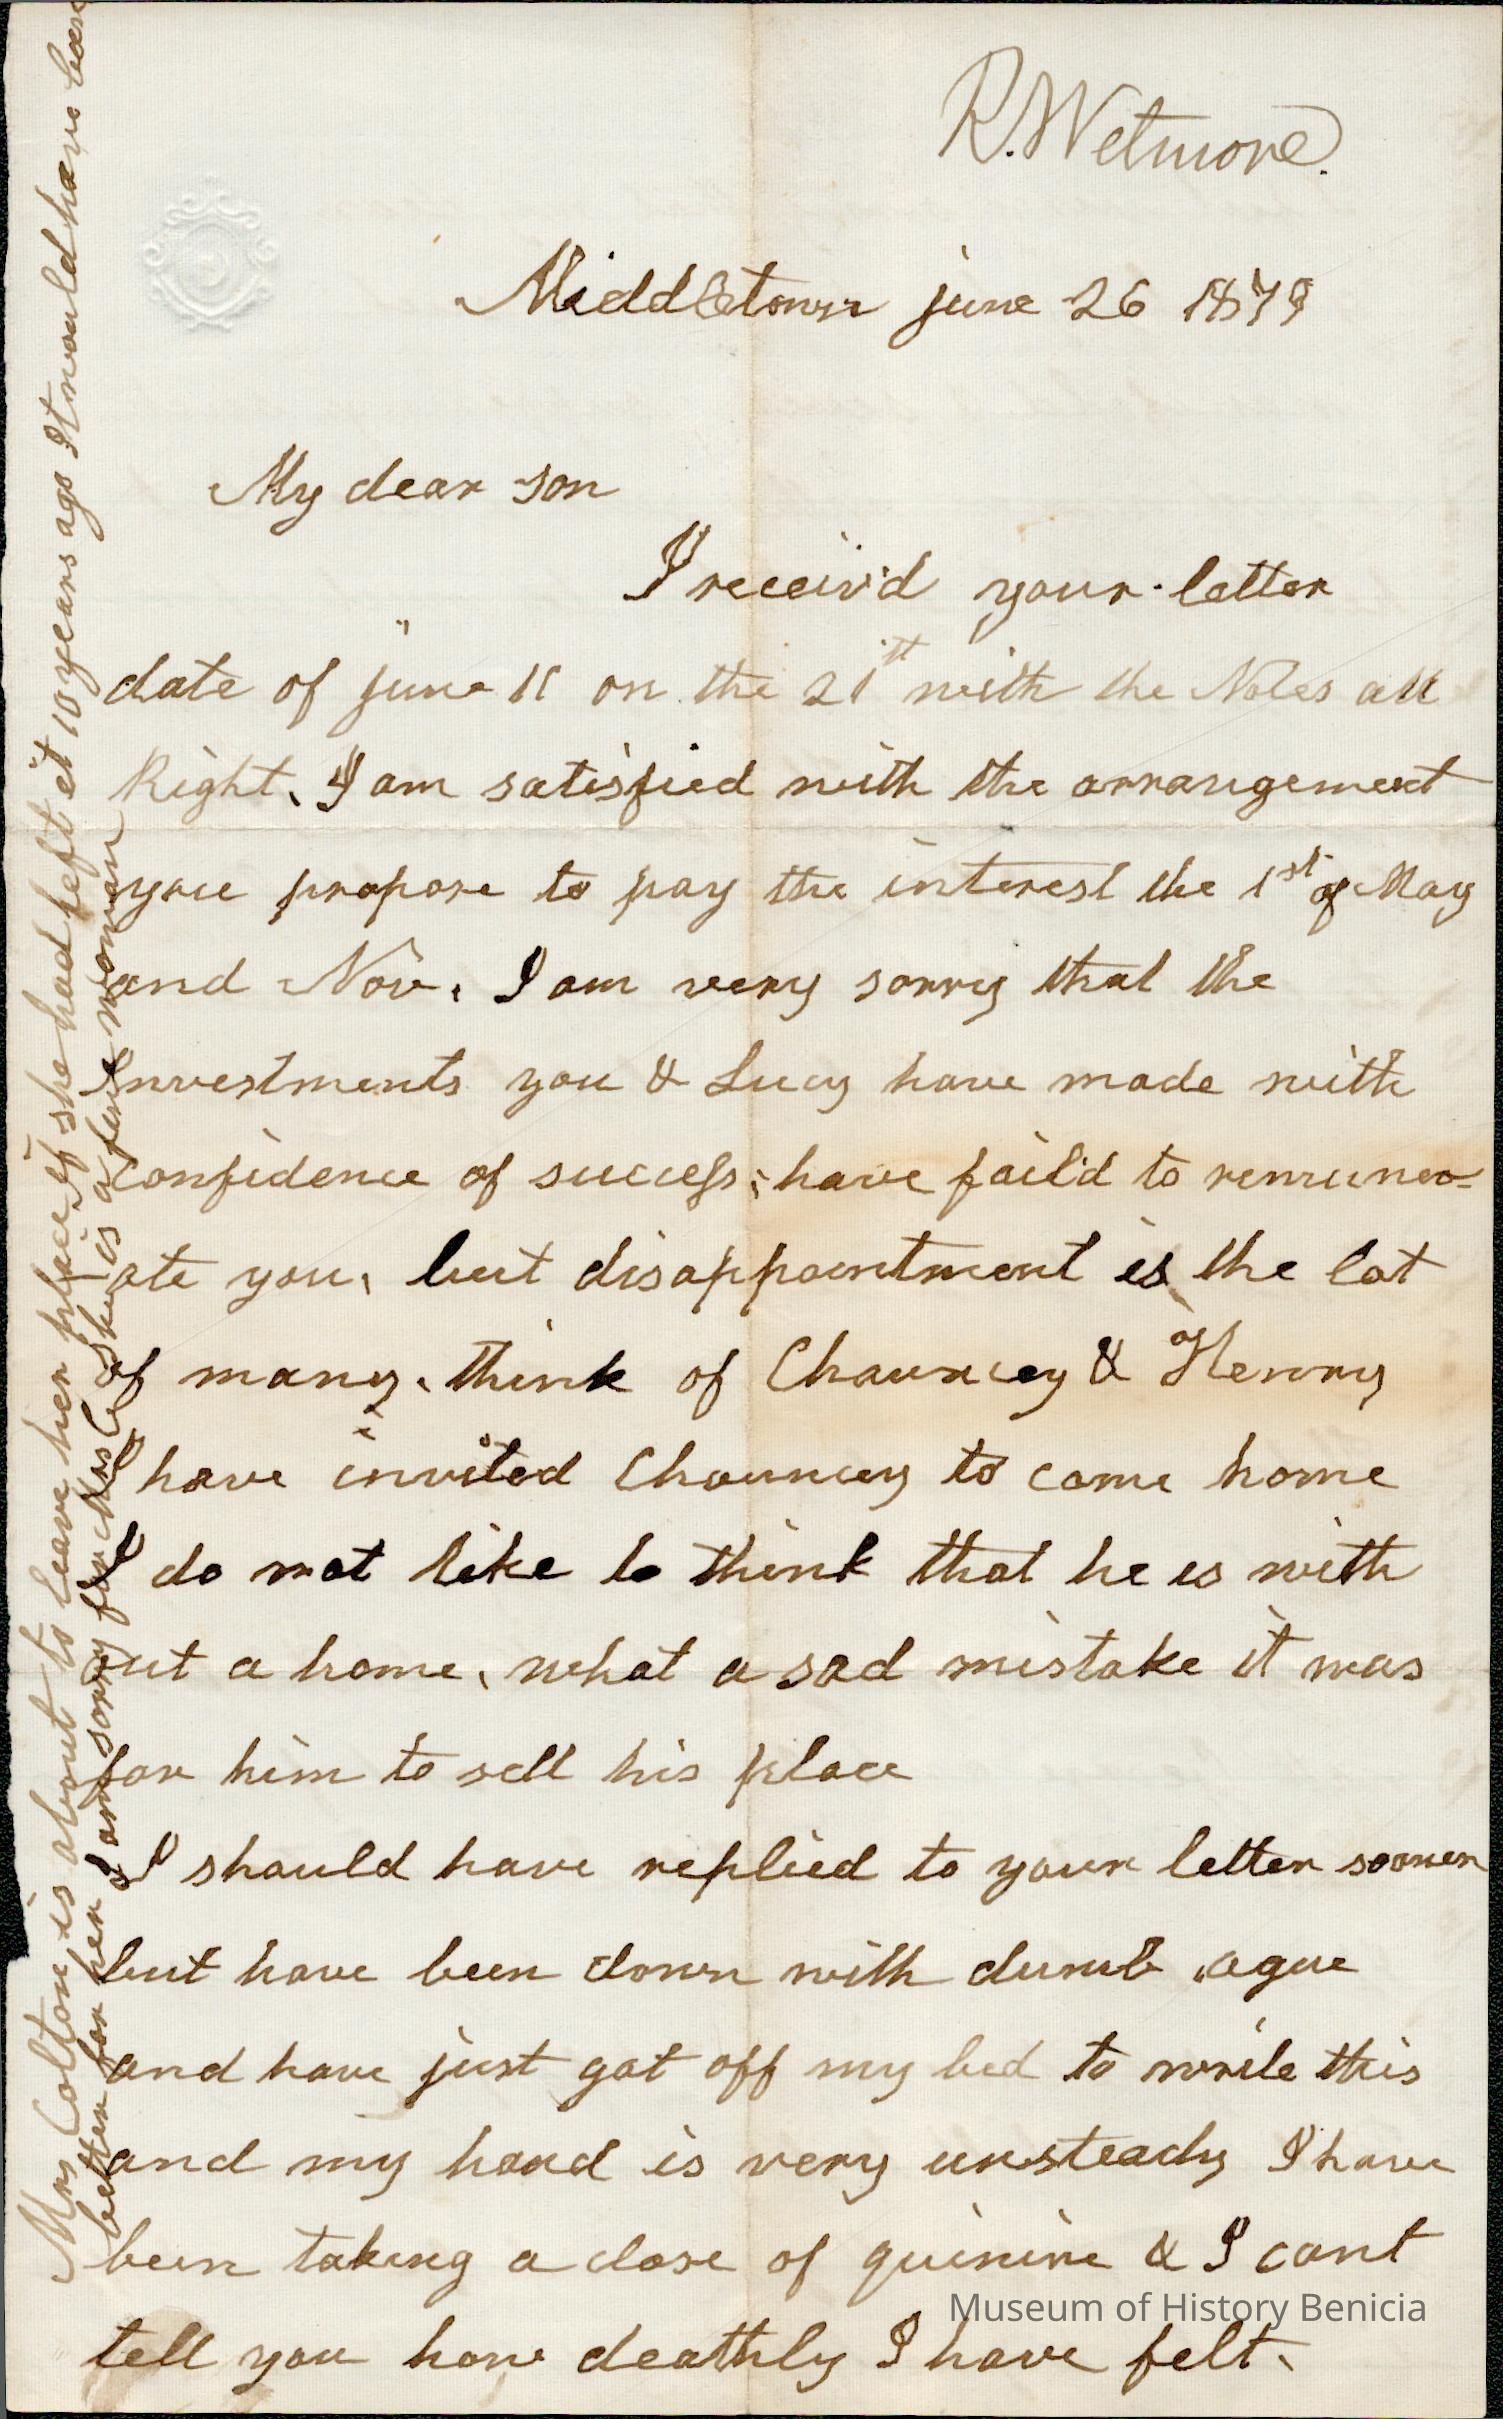 R. Wetmore.
Middletown june 26 1879
My dear son
I receiv'd your letter
date of june 11 on the 21st with the Notes all
Right. I am satisfied with the arrangement
you propose to pay the interest the 1st of May
and Nov. I am very sorry that the
Investments you & Lucy have made with
confidence of success; have fail'd to remuner=
ate you, but disappointment is the lot
of many. think of Chauncey & Henry
I have invited Chauncey to come home
I do not like to think that he is with
out a home, what a sad mistake it was
for him to sell his place
I should have replied to your letter sooner
but have been down with dumb ague
and have just got off my bed to write this
and my hand is very unsteady I have
been taking a dose of quinine & I cant
tell you how deathly I have felt.
Mrs Colton is about to leave her place, If she had left it 10 years ago It would have been
better for her I am sorry for she is a fine woman
Museum of History Benicia